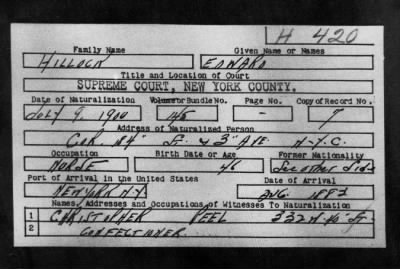 H 420
Family Name Given Name or Names
HILLOCK EDWARD
Title and Location of Court
SUPREME COURT, NEW YORK COUNTY.
Date of Naturalization Volume or Bundle No. Page No. Copy of Record No.
JULY 9, 1900 145 - 9
Address of Naturalized Person
COR. 184" St. & 3" AVE. N.Y.C.
Occupation Birth Date or Age Former Nationality
46 See other side
Port of Arrival in the United States Date of Arrival
NEW YORK N.Y.
Names, Addresses and Occupations of Witnesses To Naturalization
1 CHRISTOPHER PEEL 332 St
2 CONFECTIONER